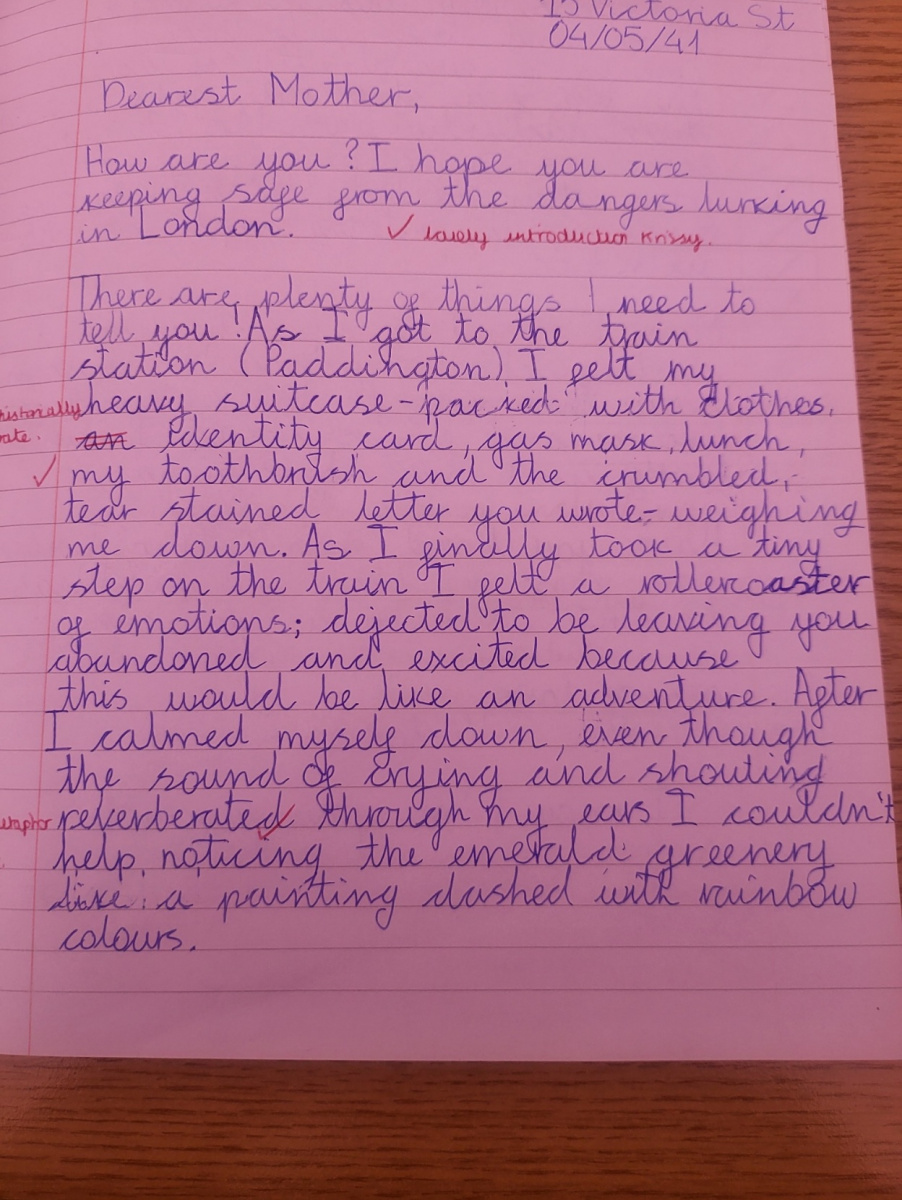 15 Victoria St
04/05/41
Dearest Mother,
How are you? I hope you are
keeping safe from the dangers lurking
in London.
✓ lovely introduction Krissy.
There are plenty of things I need to
tell you! As I got to the train
station (Paddington) I felt my
historically heavy suitcase - packed with clothes,
rate. an identity card, gas mask, lunch,
✓ my toothbrush and the crumbled,
tear stained letter you wrote - weighing
me down. As I finally took a tiny
step on the train I felt a rollercoaster
of emotions; dejected to be leaving you
abandoned and excited because
this would be like an adventure. After
I calmed myself down, even though
the sound of crying and shouting
reverberated through my ears I couldn't
help noticing the emerald greenery
like a painting dashed with rainbow
colours.